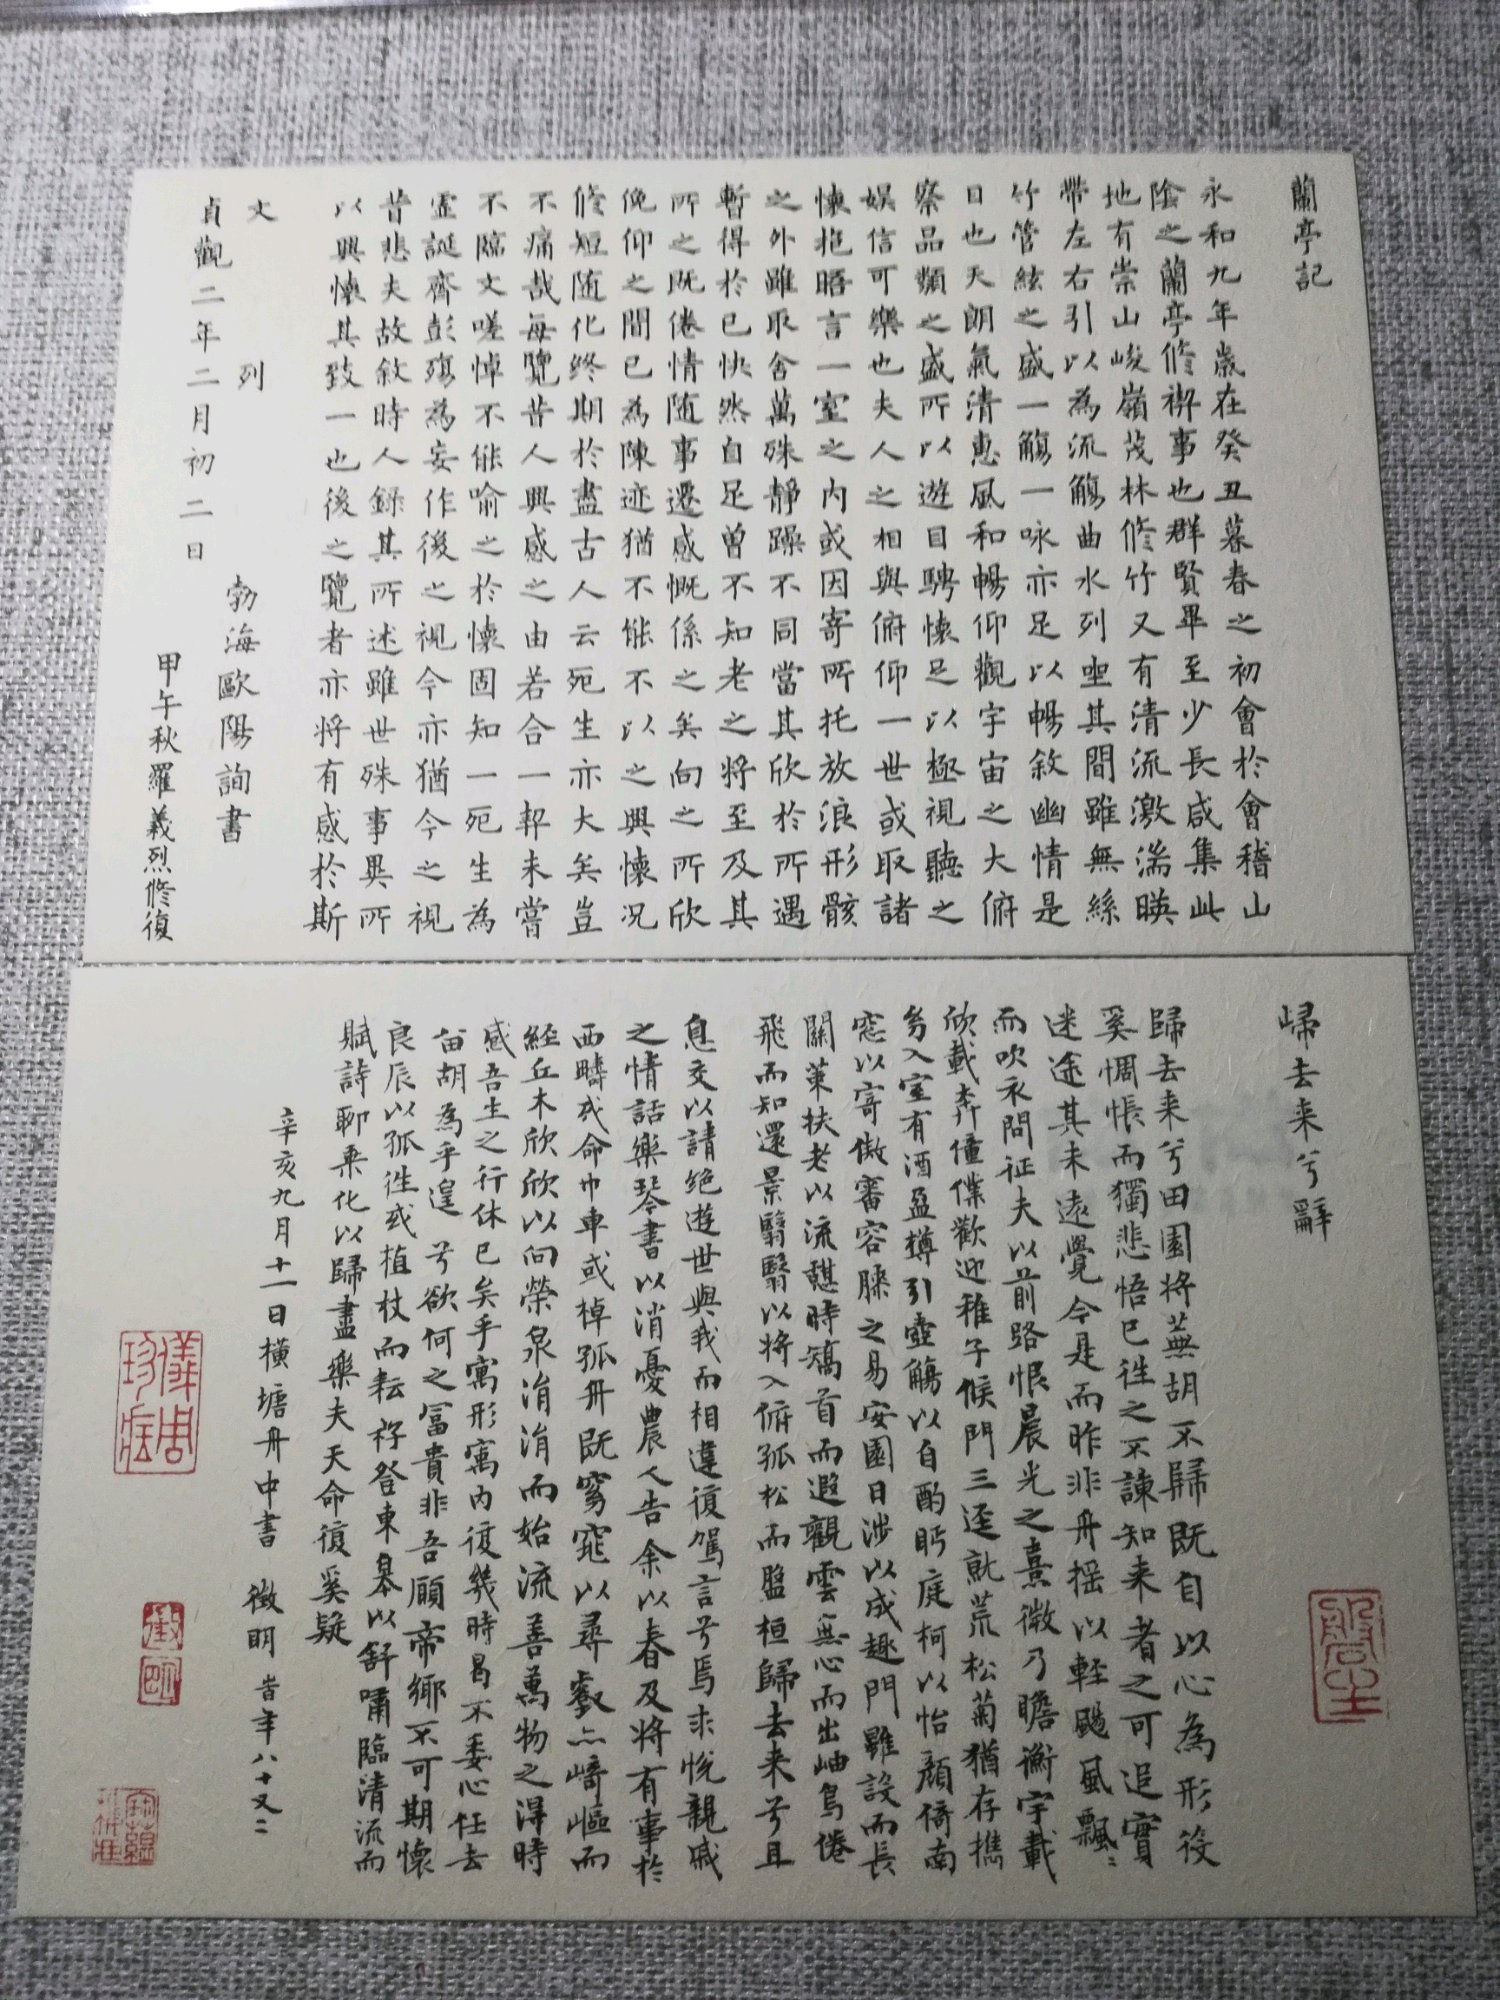 蘭亭記
永和九年歲在癸丑暮春之初會於會稽山
陰之蘭亭修禊事也群賢畢至少長咸集此
地有崇山峻嶺茂林修竹又有清流激湍暎
帶左右引以為流觴曲水列坐其間雖無絲
竹管絃之盛一觴一咏亦足以暢敘幽情是
日也天朗氣清惠風和暢仰觀宇宙之大俯
察品類之盛所以遊目騁懷足以極視聽之
娛信可樂也夫人之相與俯仰一世或取諸
懷抱晤言一室之內或因寄所托放浪形骸
之外雖取舍萬殊靜躁不同當其欣於所遇
暫得於已快然自足曾不知老之將至及其
所之既倦情隨事遷感慨係之矣向之所欣
俛仰之間已為陳迹猶不能不以之興懷况
修短随化終期於盡古人云死生亦大矣豈
不痛哉每覽昔人興感之由若合一契未嘗
不臨文嗟悼不能喻之於懷固知一死生為
虛誕齊彭殤為妄作後之視今亦猶今之視
昔悲夫故敘時人錄其所述雖世殊事異所
以興懷其致一也後之覽者亦將有感於斯
文 列 勃海歐陽詢書
貞觀二年二月初二日
甲午秋羅義烈修復
歸去来兮辭
歸去来兮田園将蕪胡不歸既自以心為形役
奚惆悵而獨悲悟已往之不諫知来者之可追實
迷途其未遠覺今是而昨非舟摇以輕颺風飄:
而吹衣問征夫以前路恨晨光之熹微乃瞻衡宇載
欣載奔僮僕歡迎稚子候門三逕就荒松菊猶存攜
㓜入室有酒盈樽引壺觴以自酌眄庭柯以怡顏倚南
窓以寄傲審容膝之易安園日涉以成趣門雖設而長
關策扶老以流憩時矯首而遐觀雲無心而出岫鳥倦
飛而知還景翳翳以将入俯孤松而盤桓歸去来兮且
息交以請絶遊世與我而相違復駕言兮焉求悅親戚
之情話樂琴書以消憂農人告余以春及将有事於
西疇或命巾車或棹孤舟既窈窕以尋壑亦崎嶇而
經丘木欣欣以向榮泉涓涓而始流善萬物之得時
感吾生之行休已矣乎寓形寓內復幾時曷不委心任去
留胡為乎遑 兮欲何之富貴非吾願帝鄉不可期懷
良辰以孤往或植杖而耘秄登東皋以舒嘯臨清流而
賦詩聊乘化以歸盡樂夫天命復奚疑
辛亥九月十一日橫塘舟中書 徵明 旹年八十又二
徵
明